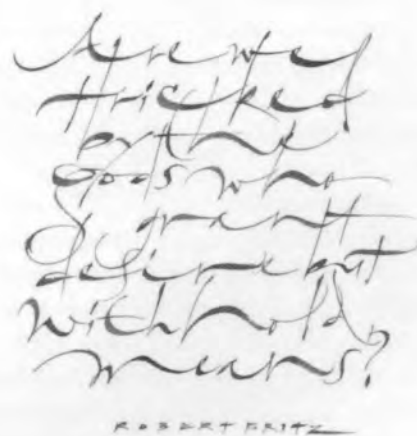 Are we
tricked
by the
gods who
grant
desire but
withhold
means?
ROBERT FRITZ